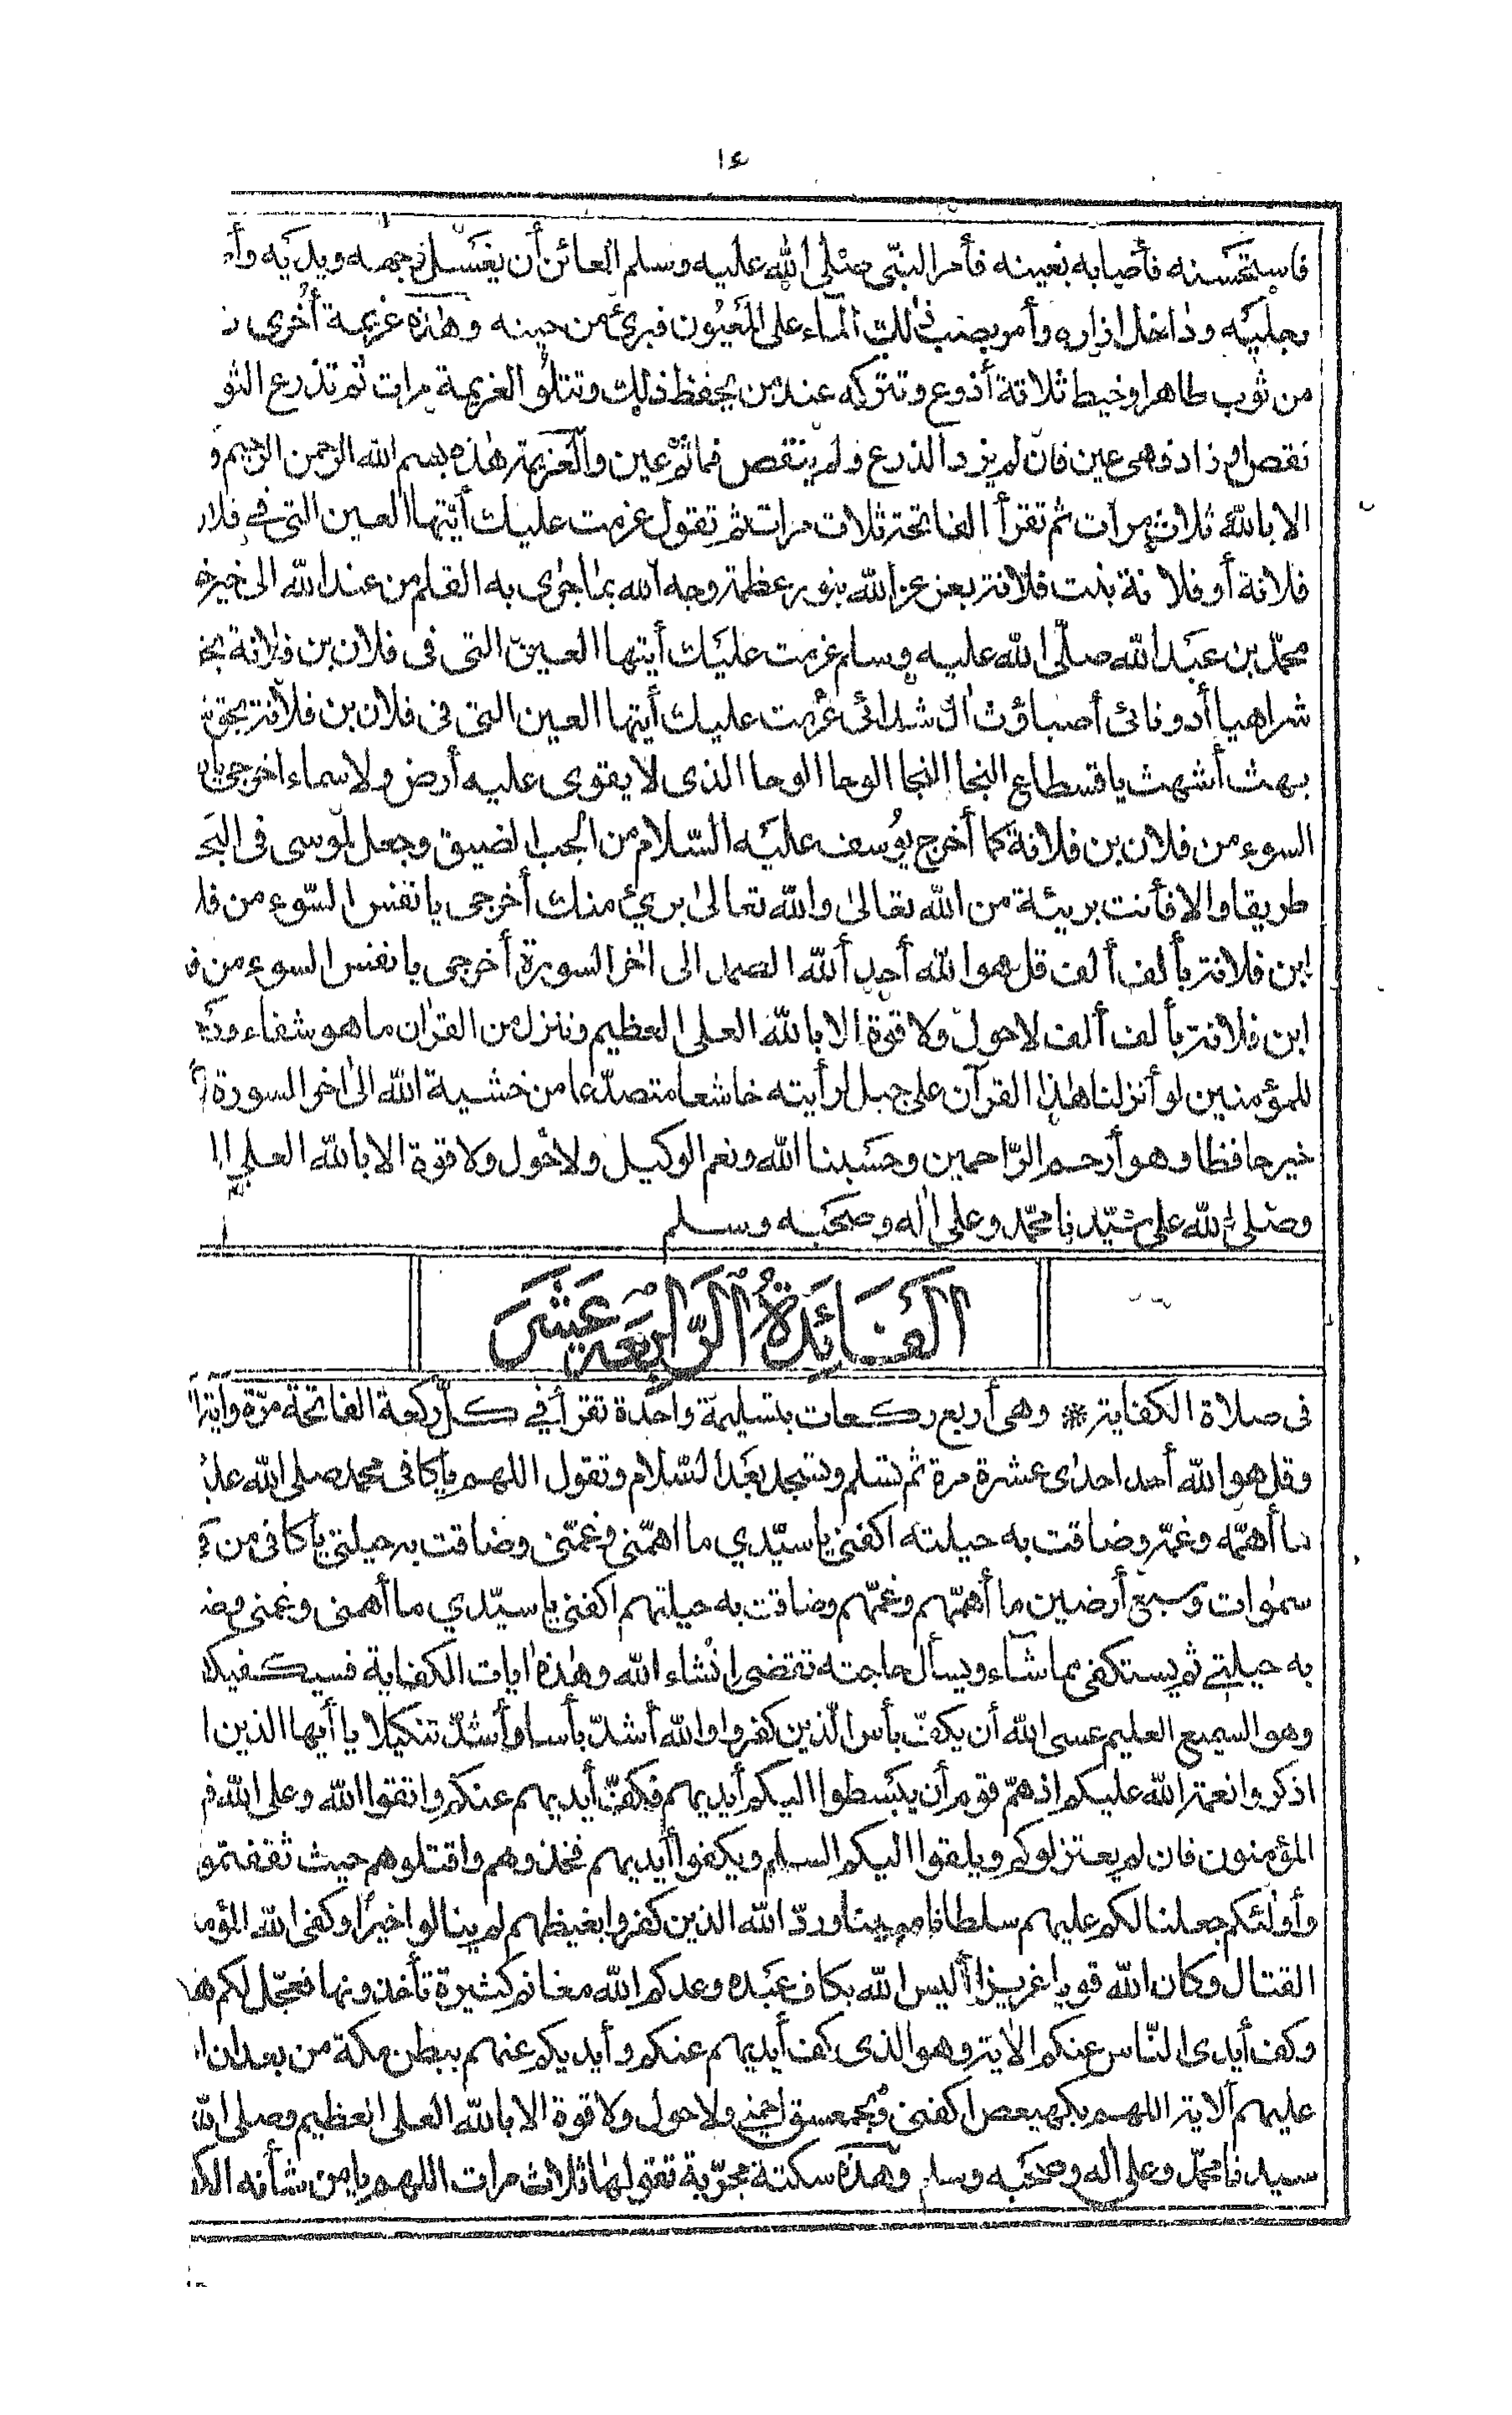 ١٤
فاستحسنه فأصابه بعينه فأمر النبي صلى الله عليه وسلم العائن أن يغتسل وجهه ويديه وأ
رجليه وداخل ازاره وأمر بصب ذلك الماء على المعيون فبرئ من حينه وهذه عزيمة أخرى
من ثوب طاهر أو خيط ثلاثة أذرع وتتركه عند من يحفظ ذلك وتتلو العزيمة مرات ثم تذرع الثو
نقص أو زاد فهى عين فان لم يزد الذرع ولم ينقص فما ثم عين والعزيمة هذه بسم الله الرحمن الرحيم و
الا بالله ثلاث مرات ثم تقرأ الفاتحة ثلاث مرات ثم تقول عزمت عليك أيتها العين التى في فلان
فلانة أو فلانة بنت فلانة بعز عز الله بنور عظمة وجه الله بما جرى به القلم من عند الله الى خير خ
محمد بن عبد الله صلى الله عليه وسلم عزمت عليك أيتها العين التى فى فلان بن فلانة بحق
شراهيا أدوناى أصباؤث ال شداى عزمت عليك أيتها العين التى فى فلان بن فلانة بحق
بهت أشهت ياقسطاع النجا النجا الوحا الوحا الذى لا يقوى عليه أرض ولا سماء اخرجى يا
السوء من فلان بن فلانة كما أخرج يوسف عليه السلام من الجب الضيق وجعل لموسى فى البحـ
طريقا والا فأنت بريئة من الله تعالى والله تعالى برىء منك أخرجى يا نفس السوء من فلا
ابن فلانة بألف ألف قل هو الله أحد ألله الصمد الى اخر السورة أخرجى يا نفس السوء من ف
ابن فلانة بألف ألف لا حول ولا قوة الا بالله العلى العظيم وننزل من القرآن ما هو شفاء ورحـ
للمؤمنين لو أنزلنا هذا القرآن على جبل لرأيته خاشعا متصدعا من خشية الله الى اخر السورة
خير حافظا وهو أرحم الراحمين وحسبنا الله ونعم الوكيل ولا حول ولا قوة الا بالله العلى ا
وصلى الله على سيدنا محمد وعلى اله وصحبه وسلم
الفَائِدَةُ الرَّابِعَة عَشَر
فى صلاة الكفاية * وهى أربع ركعات بتسليمة واحدة تقرأ في كل ركعة الفاتحة مرة واية ا
وقل هو الله أحد احدى عشرة مرة ثم تسلم وتسجد بعد السلام وتقول اللهم ياكافى محمد صلى الله عليه
ما أهمه وغمه وضاقت به حيلته اكفنى يا سيدي ما اهمنى وغمنى وضاقت به حيلتي يا كافى من فى
سموات وسبع أرضين ما أهمهم وغمهم وضاقت به حيلتهم اكفنى يا سيدي ما أهمنى وغمنى وضا
به حيلتى ثم يستكفى بما شاء ويسأل حاجته تقضى ان شاء الله وهذه ايات الكفاية فسيكفيكهـ
وهو السميع العليم عسى الله أن يكف بأس الذين كفروا والله أشد بأسا وأشد تنكيلا يا أيها الذين ا
اذكروا نعمة الله عليكم اذ هم قوم أن يبسطوا اليكم أيديهم فكف أيديهم عنكم واتقوا الله وعلى الله ف
المؤمنون فان لم يعتزلوكم ويلقوا اليكم السلم ويكفوا أيديهم فخذوهم واقتلوهم حيث ثقفتمو
وأولئكم جعلنا لكم عليهم سلطانا مبينا ورد الله الذين كفروا بغيظهم لم ينالوا خيرا وكفى الله المؤمـ
القتال وكان الله قويا عزيزا أليس الله بكاف عبده وعدكم الله مغانم كثيرة تأخذونها فعجل لكم هـ
وكف أيدى الناس عنكم الاية وهو الذى كف أيديهم عنكم وأيديكم عنهم ببطن مكة من بعد ان ا
عليهم الاية اللهم بكهيعص اكفنى وبحمعسق احمنى ولا حول ولا قوة الا بالله العلى العظيم وصلى الله
سيدنا محمد وعلى اله وصحبه وسلم وهذه سكتة مجربة تقولها ثلاث مرات اللهم يا من شأنه الكـ